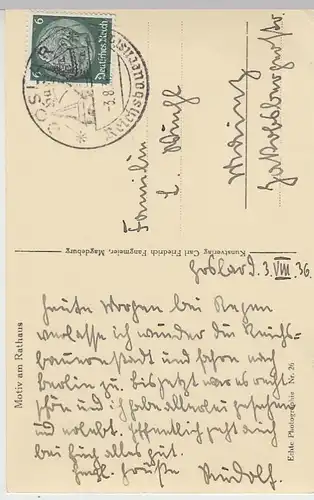 6
Deutsches Reich
GOSLAR
Reichsbauernstadt
-3.8.
Familie
L.
Mainz
Jakobsbergerstr.
Kunstverlag Carl Friedrich Fangmeier, Magdeburg
Motiv am Rathaus
Echte Photographie Nr. 26
Goslar d. 3. VIII. 36.
Heute Morgen bei Regen
verlasse ich wieder die Reichs-
bauernstadt und fahre nach
Berlin zu. Bis jetzt war es recht
schön und ich habe allerlei gesehen
und erlebt. Hoffentlich geht auch
bei Euch alles gut.
Herzl. Grüße Rudolf.